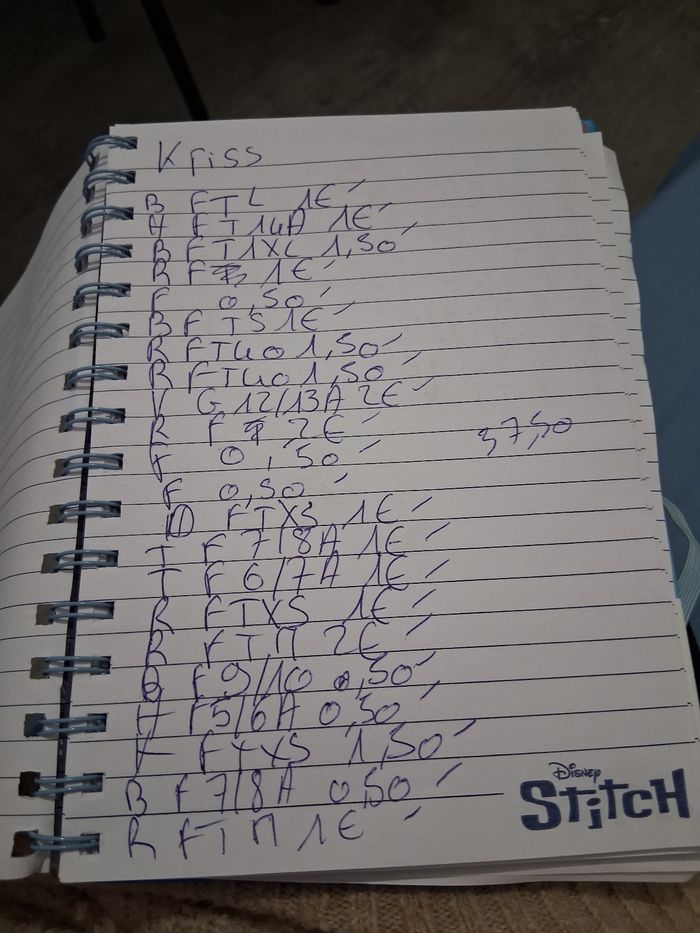 Kriss
B FTL 1€
H FT14A 1€
B FT1XL 1,50
R F 1€
F 0,50
B FTS 1€
R FT40 1,50
R FT40 1,50
V G 12/13A 2€
R F 2€
F 0,50
37,50
F 0,50
FTXS 1€
T F 7/8A 1€
T F 6/7A 1€
R FTXS 1€
R FTM 2€
F9/10 0,50
H F5/6A 0,50
FTXS 1,50
B F 7/8A 0,50
R FTM 1€
DISNEY
STiTCH